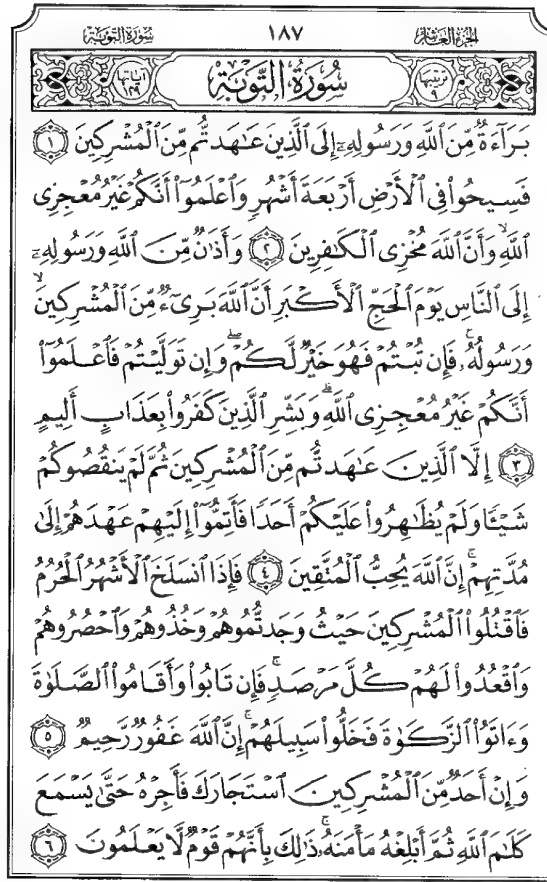 سُورَةُ التَّوْبَةِ ١٨٧ الجُزْءُ العَاشِرُ
آيَاتُهَا ١٢٩ سُورَةُ التَّوْبَةِ تَرْتِيبُهَا ٩
بَرَآءَةٌ مِّنَ ٱللَّهِ وَرَسُولِهِۦٓ إِلَى ٱلَّذِينَ عَٰهَدتُّم مِّنَ ٱلْمُشْرِكِينَ ١
فَسِيحُوا۟ فِى ٱلْأَرْضِ أَرْبَعَةَ أَشْهُرٍ وَٱعْلَمُوٓا۟ أَنَّكُمْ غَيْرُ مُعْجِزِى
ٱللَّهِ ۙ وَأَنَّ ٱللَّهَ مُخْزِى ٱلْكَٰفِرِينَ ٢ وَأَذَٰنٌ مِّنَ ٱللَّهِ وَرَسُولِهِۦٓ
إِلَى ٱلنَّاسِ يَوْمَ ٱلْحَجِّ ٱلْأَكْبَرِ أَنَّ ٱللَّهَ بَرِىٓءٌ مِّنَ ٱلْمُشْرِكِينَ ۙ
وَرَسُولُهُۥ ۚ فَإِن تُبْتُمْ فَهُوَ خَيْرٌ لَّكُمْ ۖ وَإِن تَوَلَّيْتُمْ فَٱعْلَمُوٓا۟
أَنَّكُمْ غَيْرُ مُعْجِزِى ٱللَّهِ ۗ وَبَشِّرِ ٱلَّذِينَ كَفَرُوا۟ بِعَذَابٍ أَلِيمٍ
٣ إِلَّا ٱلَّذِينَ عَٰهَدتُّم مِّنَ ٱلْمُشْرِكِينَ ثُمَّ لَمْ يَنقُصُوكُمْ
شَيْـًٔا وَلَمْ يُظَٰهِرُوا۟ عَلَيْكُمْ أَحَدًا فَأَتِمُّوٓا۟ إِلَيْهِمْ عَهْدَهُمْ إِلَىٰ
مُدَّتِهِمْ ۚ إِنَّ ٱللَّهَ يُحِبُّ ٱلْمُتَّقِينَ ٤ فَإِذَا ٱنسَلَخَ ٱلْأَشْهُرُ ٱلْحُرُمُ
فَٱقْتُلُوا۟ ٱلْمُشْرِكِينَ حَيْثُ وَجَدتُّمُوهُمْ وَخُذُوهُمْ وَٱحْصُرُوهُمْ
وَٱقْعُدُوا۟ لَهُمْ كُلَّ مَرْصَدٍ ۚ فَإِن تَابُوا۟ وَأَقَامُوا۟ ٱلصَّلَوٰةَ
وَءَاتَوُا۟ ٱلزَّكَوٰةَ فَخَلُّوا۟ سَبِيلَهُمْ ۚ إِنَّ ٱللَّهَ غَفُورٌ رَّحِيمٌ ٥
وَإِنْ أَحَدٌ مِّنَ ٱلْمُشْرِكِينَ ٱسْتَجَارَكَ فَأَجِرْهُ حَتَّىٰ يَسْمَعَ
كَلَٰمَ ٱللَّهِ ثُمَّ أَبْلِغْهُ مَأْمَنَهُۥ ۚ ذَٰلِكَ بِأَنَّهُمْ قَوْمٌ لَّا يَعْلَمُونَ ٦